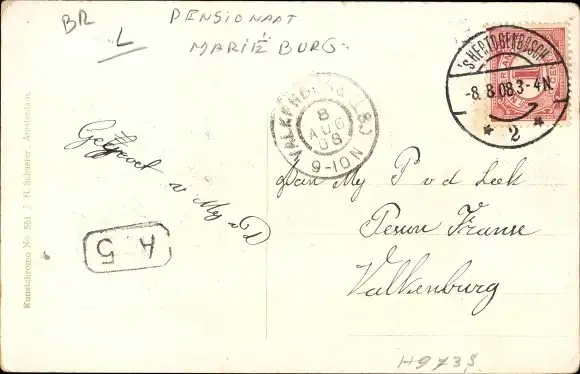 BR
L
PENSIONAAT
MARIËNBURG
'S HERTOGENBOSCH
-8. 8.08.3-4N.
2
VALKENBURG (LB)
8
AUG
08
9-10N
Gegroet v My vd
Aan My P v d Leek
Valkenburg
A 5
Kunstchromo No. 561 J. H. Schaefer, Amsterdam.
H973S